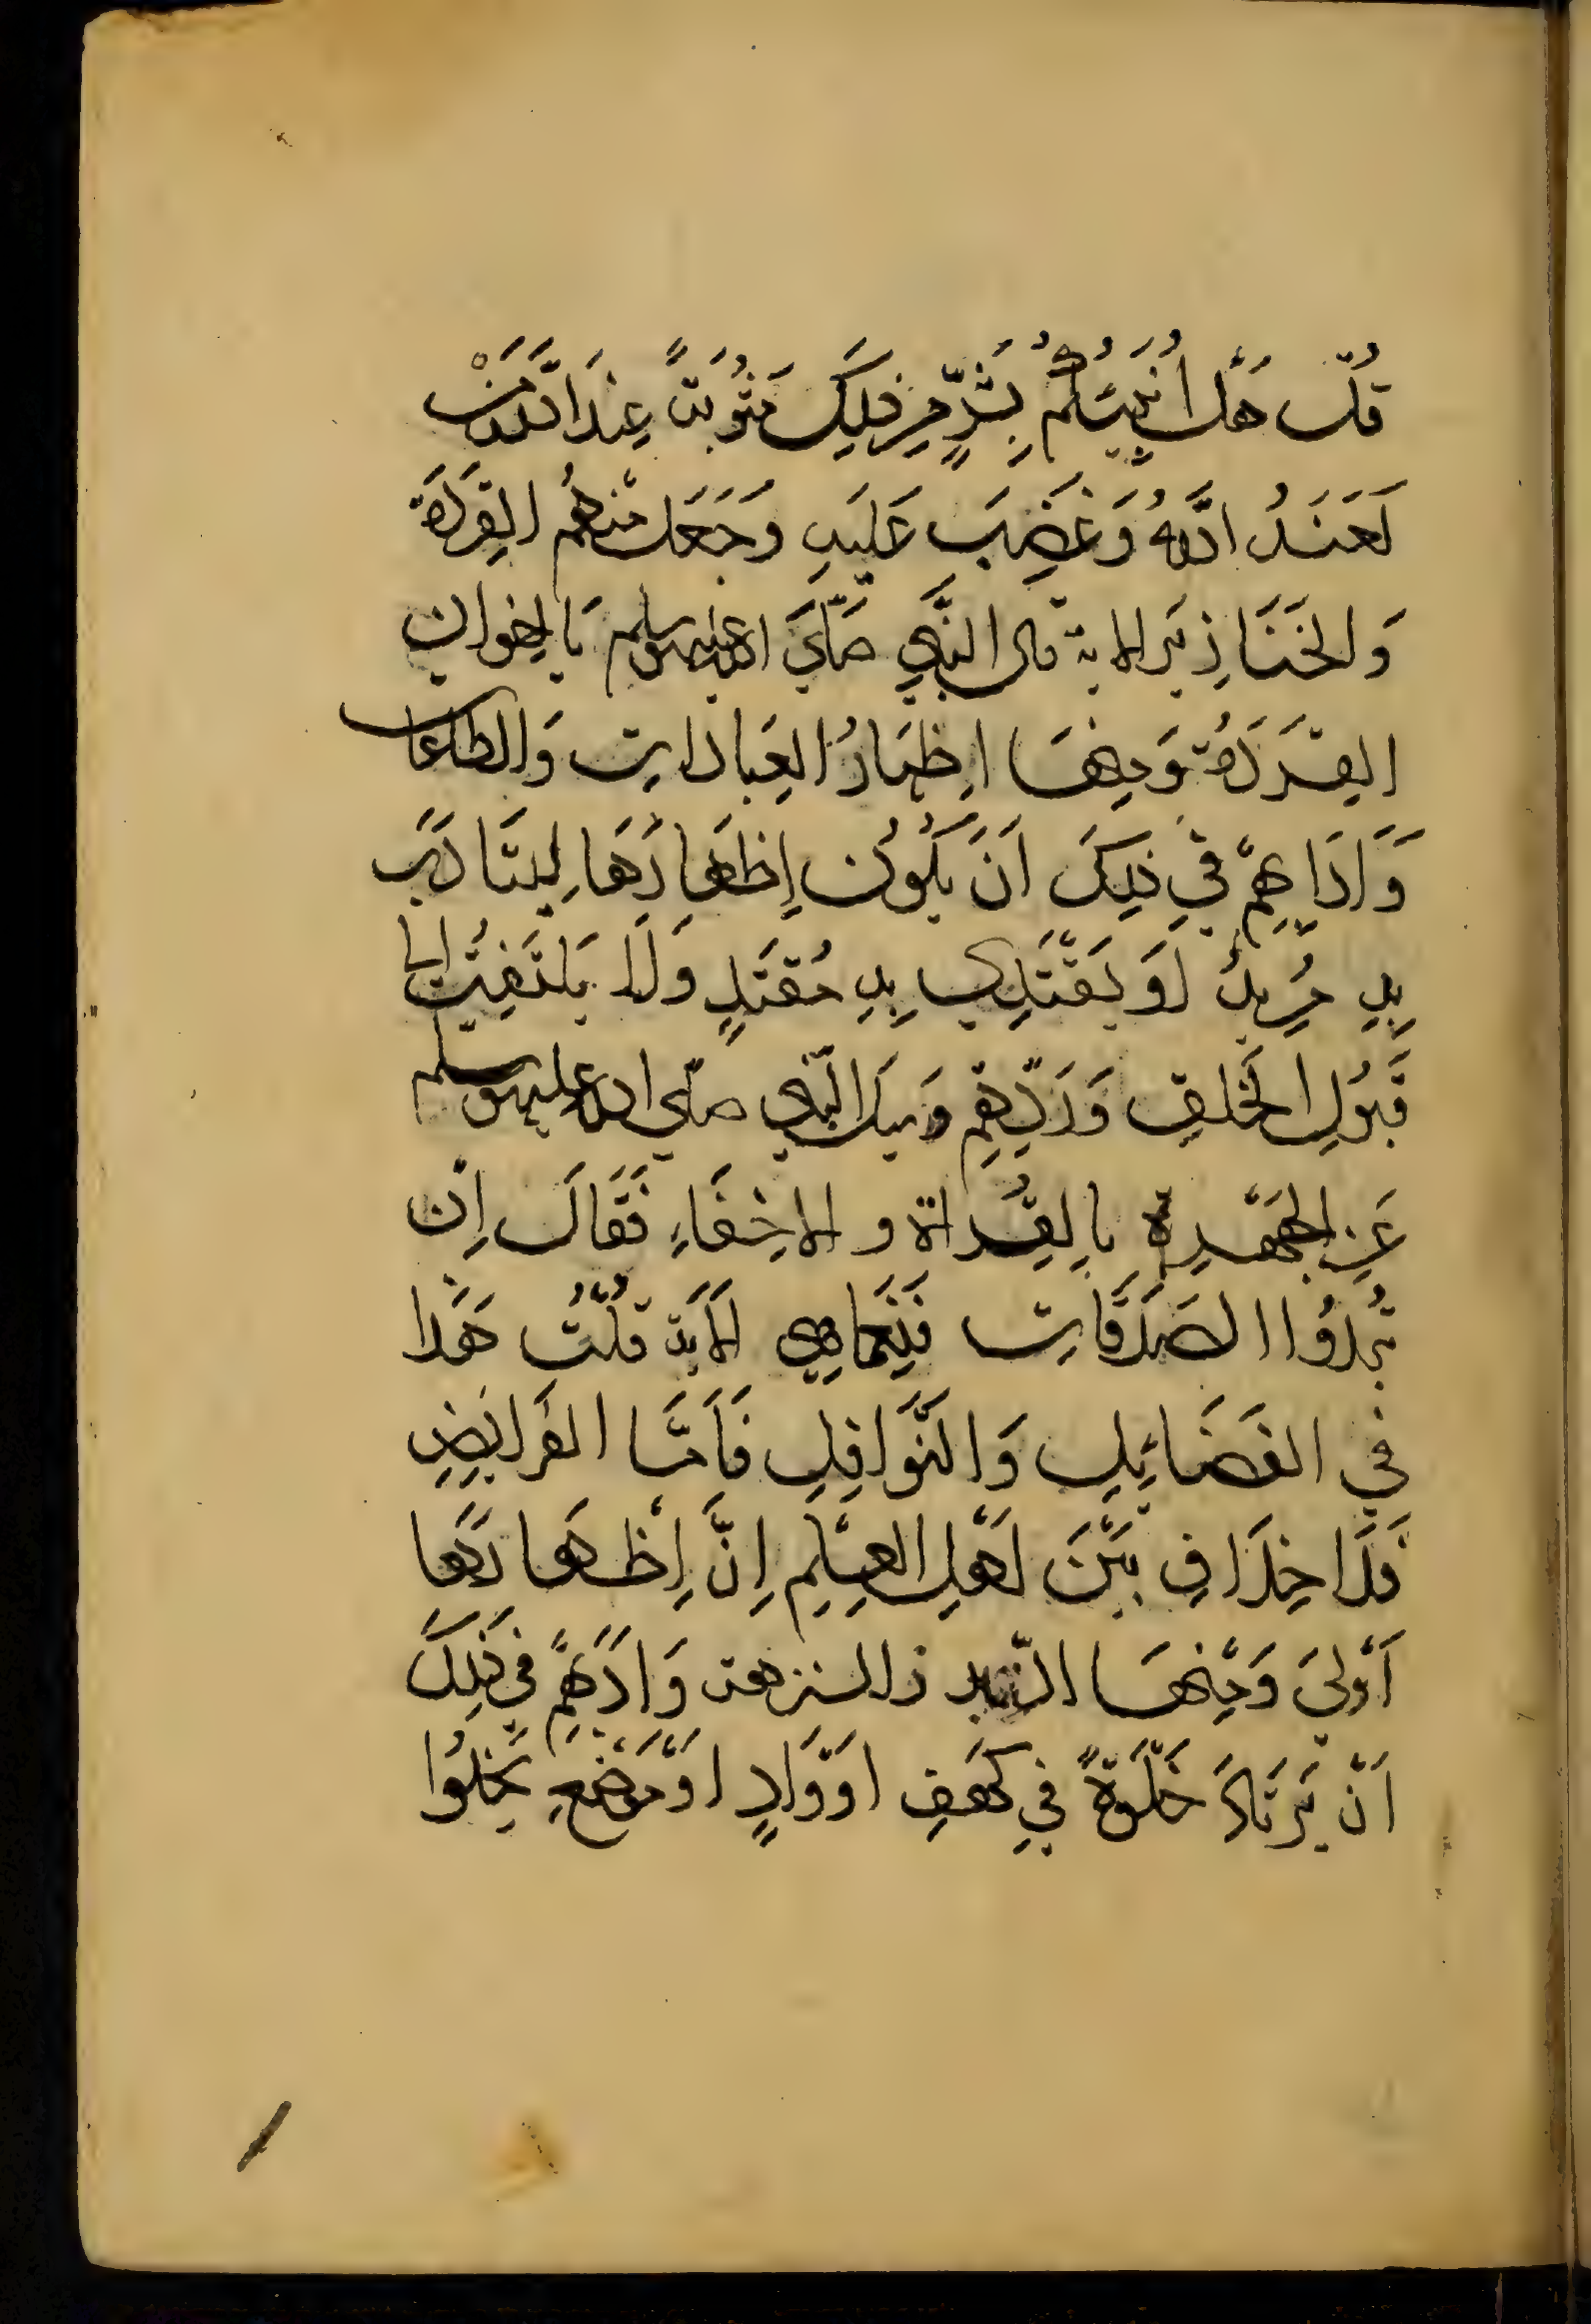 قُلْ هَلْ اُنَبِّئُكُمْ بِشَرٍّ مِنْ ذٰلِكَ مَثُوبَةً عِنْدَ اللَّهِ مَنْ
لَعَنَهُ اللَّهُ وَغَضِبَ عَلَيهِ وَجَعَلَ مِنْهُمُ القِرَدَةَ
وَالخَنَازِيَر الاية قال النَّبي صَلَّى الله عليه وسلم يَا اِخوانَ
القِرَدَةِ وَمِنهَا اِظهَارُ العِبادَاتِ وَالطاعات
وَاَدَابِهِمْ فِي ذٰلِكَ اَنْ يَكُونَ اِظهَارُهَا لِيَتَادَّبَ
بِهِ مُرِيدٌ اَوْ يَقْتَدِي بِهِ مُقْتَدٍ وَلَا يَلتَفِتُ الي
قَبُولِ الخَلقِ وَرَدِّهِم وَسيل النَّبي صلى الله عليه وسلم
عَنِ الجَهْرِ بِالقِراة و الاخِفَاءِ فَقَالَ اِن
تُبدُوا الصَدَقَاتِ فَنِعِمَّا هِي الايَة قُلْتُ هَذا
في الفَضَايِلِ وَالنَّوَافِلِ فَاَمَّا الفَرايِضِ
فَلَا خِلَافَ بَيْنَ اَهْلِ العِلْمِ اِنَّ اِظهَارَها
اَوْلَي وَمِنْهَا وَادَبُهُمْ في ذَلِكَ
اَنْ يَرتَادَ خَلْوَةً فِي كَهَفِ اَوْ وَادٍ اَوْ مَوْضِعِ يَخْلُوا